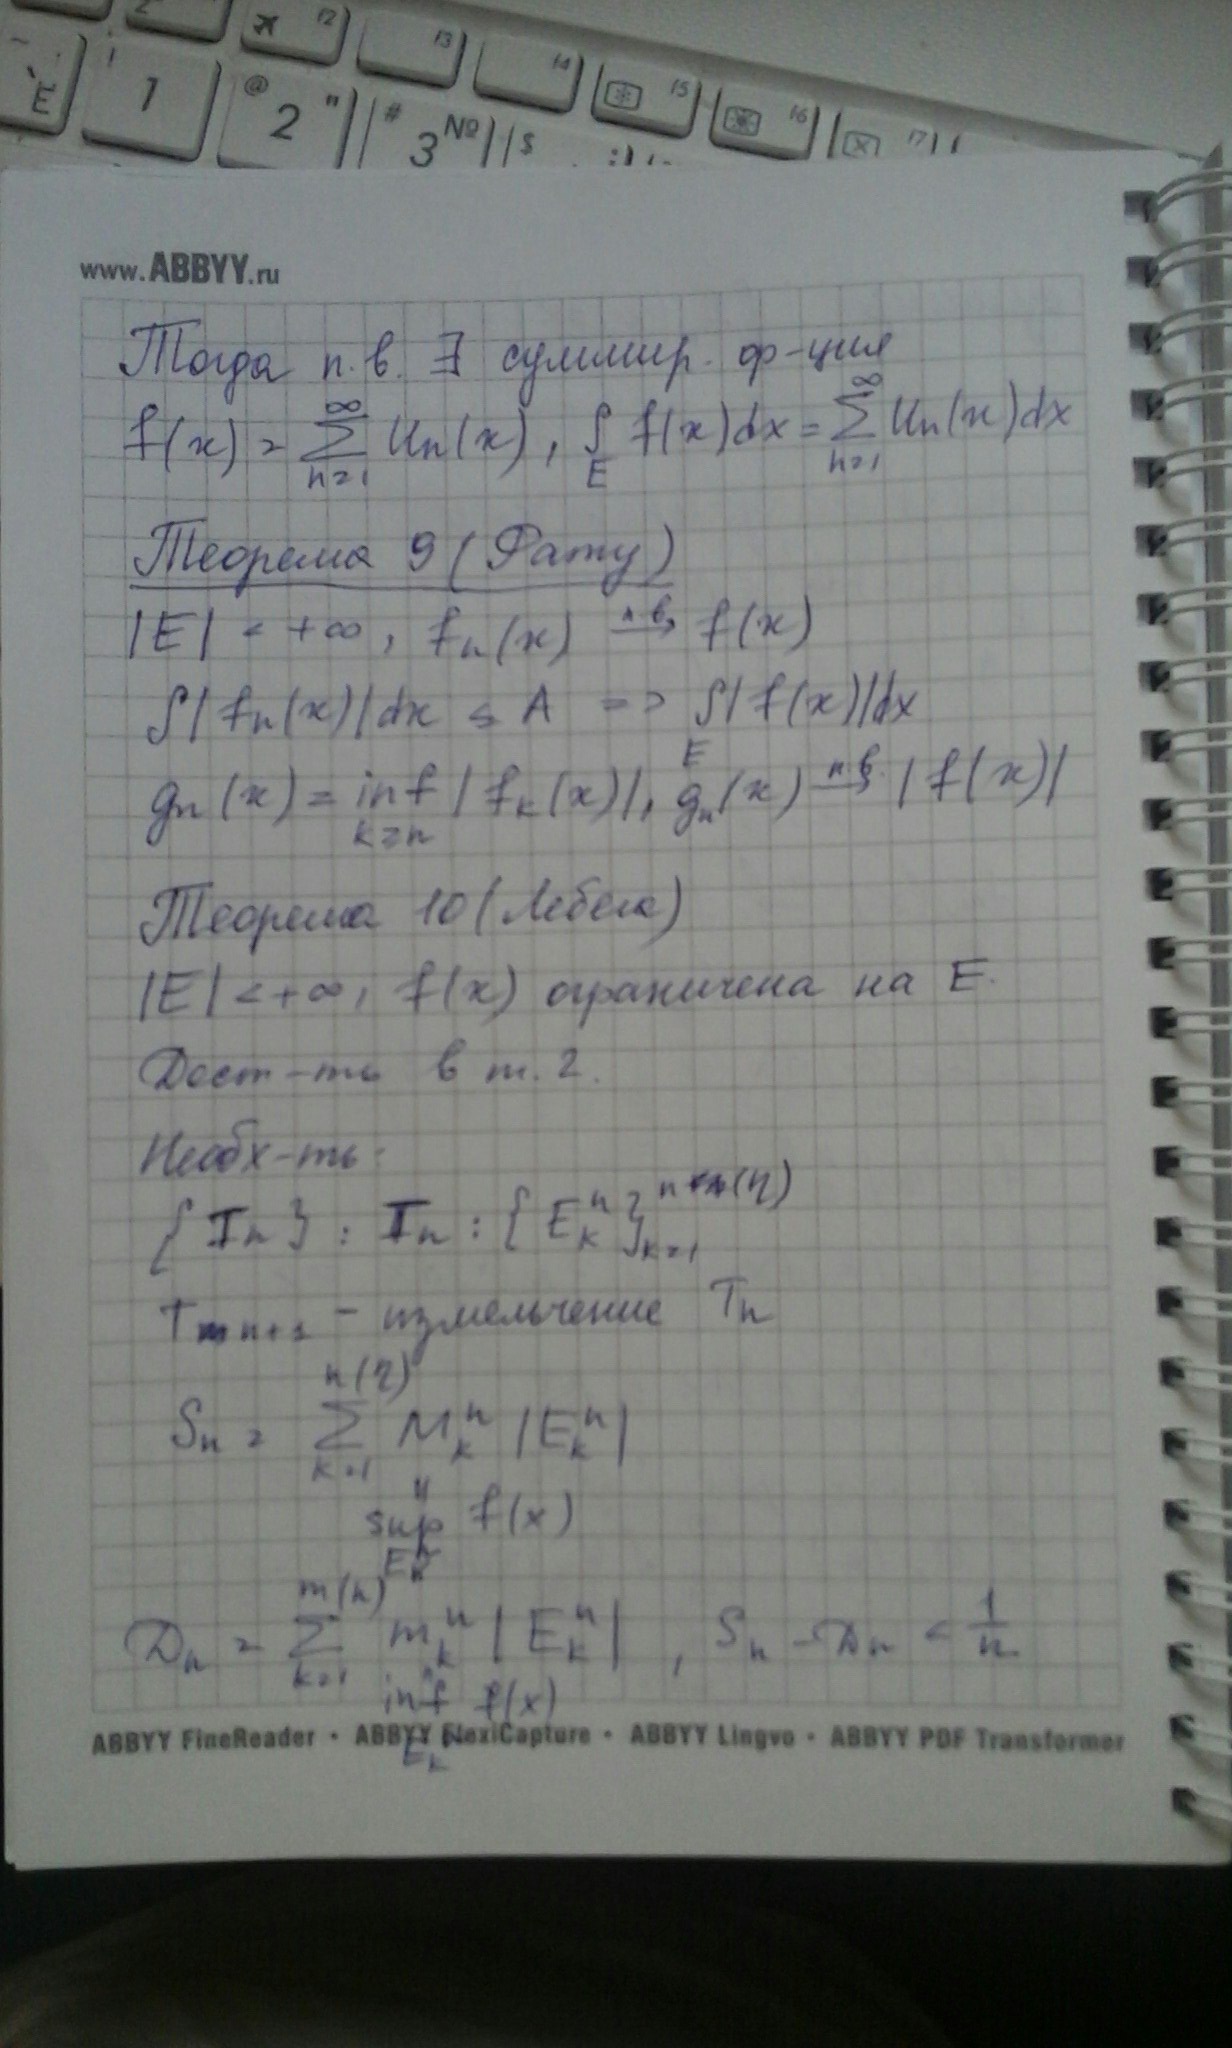 12 13 14 15 16 17
Ё ! 1 @ 2 " # 3 № $
www.ABBYY.ru
Тогда п.в. ∃ суммир. ф-ция
f(x) = ∑_{n=1}^{∞} Un(x), ∫_E f(x)dx = ∑_{n=1}^{∞} Un(x)dx
Теорема 9 (Фату)
|E| < +∞, fn(x) →^{п.в.} f(x)
∫|fn(x)|dx ≤ A => ∫_E |f(x)|dx
gn(x) = inf_{k≥n} |fk(x)|, gn(x) →^{п.в.} |f(x)|
Теорема 10 (Лебега)
|E| < +∞, f(x) ограничена на E.
Дост-ть в т. 2.
Необх-ть.
{Tn} : Tn : {E_k^n}_{k=1}
T n+1 - измельчение Tn
Sn = ∑_{k=1}^{n(η)} M_k^n |E_k^n|
"
sup f(x)
E_k^n
Dn = ∑_{k=1}^{m(n)} m_k^n |E_k^n|, Sn - Dn < 1/n
"
inf f(x)
E_k
ABBYY FineReader • ABBYY FlexiCapture • ABBYY Lingvo • ABBYY PDF Transformer